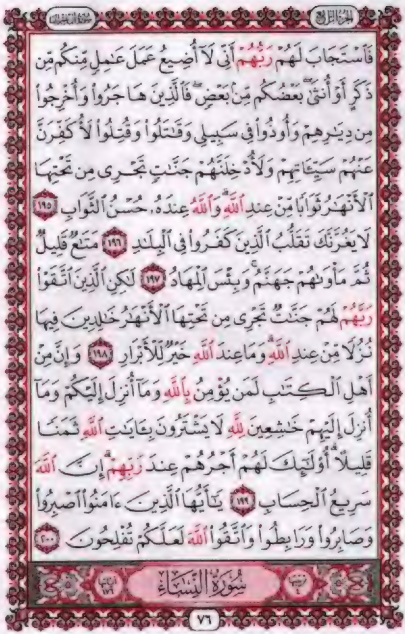 فَٱسْتَجَابَ لَهُمْ رَبُّهُمْ أَنِّى لَآ أُضِيعُ عَمَلَ عَٰمِلٍ مِّنكُم مِّن
ذَكَرٍ أَوْ أُنثَىٰ بَعْضُكُم مِّنۢ بَعْضٍ فَٱلَّذِينَ هَاجَرُوا۟ وَأُخْرِجُوا۟
مِن دِيَٰرِهِمْ وَأُوذُوا۟ فِى سَبِيلِى وَقَٰتَلُوا۟ وَقُتِلُوا۟ لَأُكَفِّرَنَّ
عَنْهُمْ سَيِّـَٔاتِهِمْ وَلَأُدْخِلَنَّهُمْ جَنَّٰتٍ تَجْرِى مِن تَحْتِهَا
ٱلْأَنْهَٰرُ ثَوَابًا مِّنْ عِندِ ٱللَّهِ وَٱللَّهُ عِندَهُۥ حُسْنُ ٱلثَّوَابِ ١٩٥
لَا يَغُرَّنَّكَ تَقَلُّبُ ٱلَّذِينَ كَفَرُوا۟ فِى ٱلْبِلَٰدِ ١٩٦ مَتَٰعٌ قَلِيلٌ
ثُمَّ مَأْوَىٰهُمْ جَهَنَّمُ وَبِئْسَ ٱلْمِهَادُ ١٩٧ لَٰكِنِ ٱلَّذِينَ ٱتَّقَوْا۟
رَبَّهُمْ لَهُمْ جَنَّٰتٌ تَجْرِى مِن تَحْتِهَا ٱلْأَنْهَٰرُ خَٰلِدِينَ فِيهَا
نُزُلًا مِّنْ عِندِ ٱللَّهِ وَمَا عِندَ ٱللَّهِ خَيْرٌ لِّلْأَبْرَارِ ١٩٨ وَإِنَّ مِنْ
أَهْلِ ٱلْكِتَٰبِ لَمَن يُؤْمِنُ بِٱللَّهِ وَمَآ أُنزِلَ إِلَيْكُمْ وَمَآ
أُنزِلَ إِلَيْهِمْ خَٰشِعِينَ لِلَّهِ لَا يَشْتَرُونَ بِـَٔايَٰتِ ٱللَّهِ ثَمَنًا
قَلِيلًا أُو۟لَٰٓئِكَ لَهُمْ أَجْرُهُمْ عِندَ رَبِّهِمْ إِنَّ ٱللَّهَ
سَرِيعُ ٱلْحِسَابِ ١٩٩ يَٰٓأَيُّهَا ٱلَّذِينَ ءَامَنُوا۟ ٱصْبِرُوا۟
وَصَابِرُوا۟ وَرَابِطُوا۟ وَٱتَّقُوا۟ ٱللَّهَ لَعَلَّكُمْ تُفْلِحُونَ ٢٠٠
سُورَةُ النِّسَاءِ
٧٦